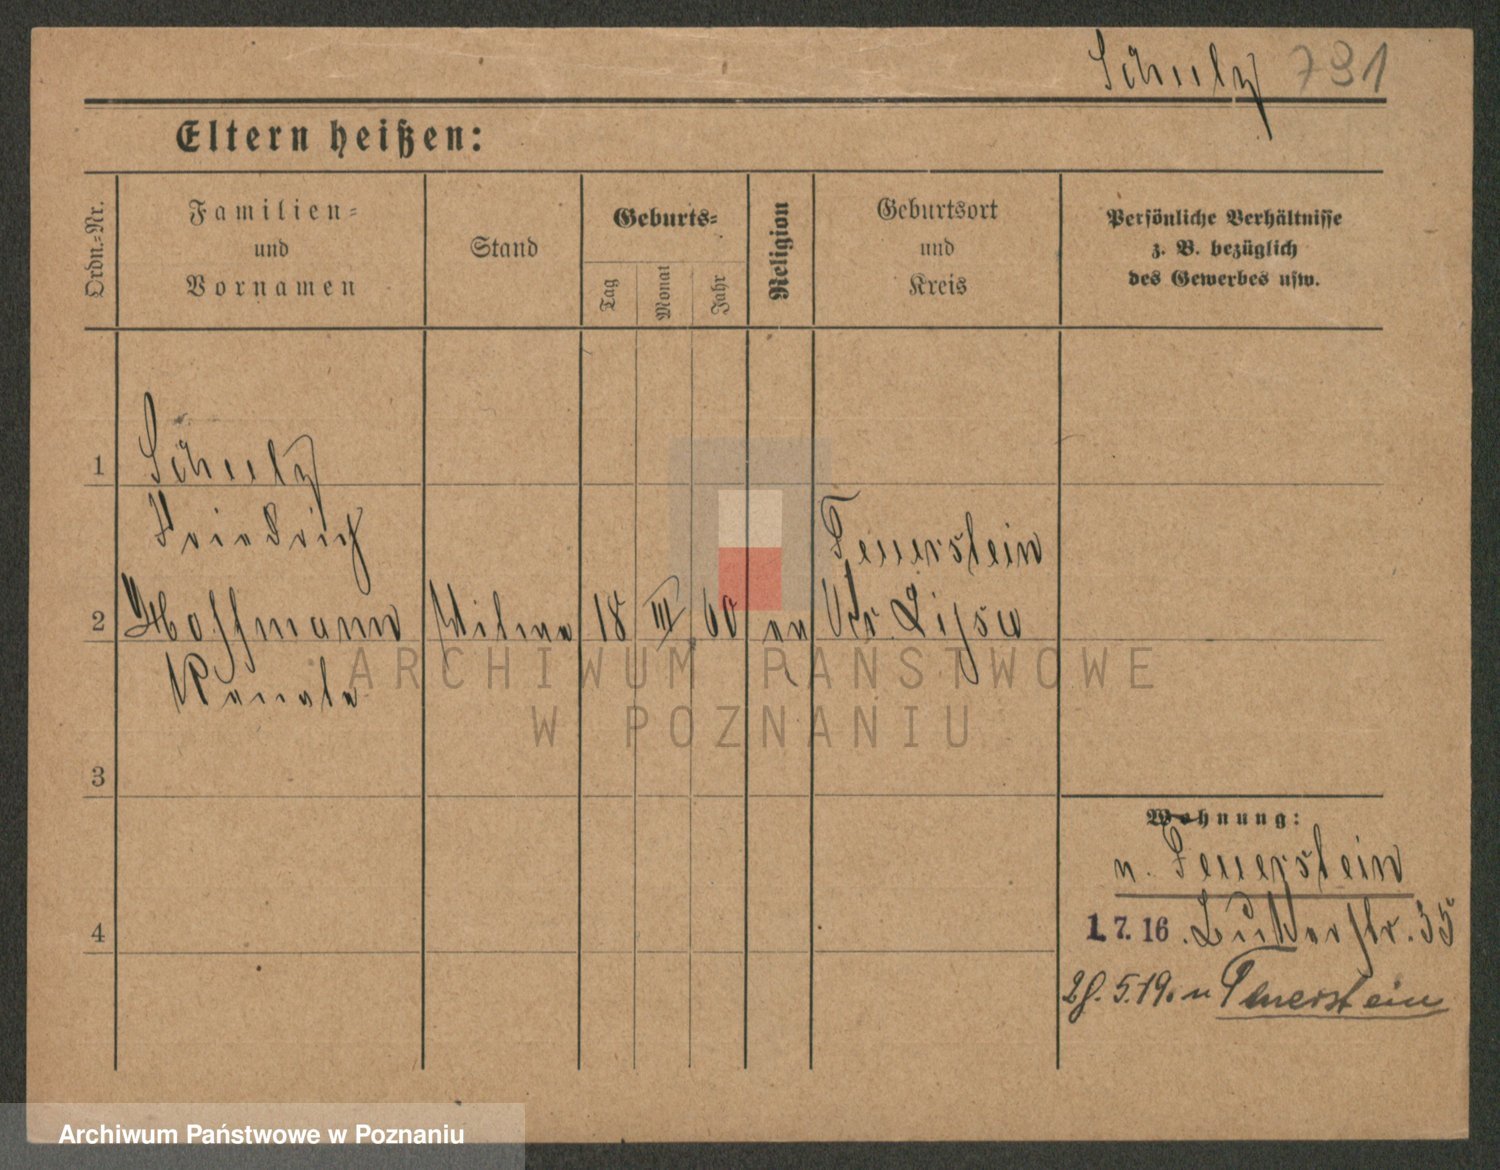 Schulz 791
Eltern heißen:
Ordn.=Nr.
Familien=
und
Vornamen
Stand
Geburts=
Tag
Monat
Jahr
Religion
Geburtsort
und
Kreis
Persönliche Verhältnisse
z. B. bezüglich
des Gewerbes usw.
1
Schulz
Friedrich
2
Hoffmann
Renate
Witwe
18
III
60
ev
Feuerstein
Kr. Lissa
3
4
Wohnung:
n. Feuerstein
1. 7. 16.
str. 35
28. 5. 19. n Feuerstein
ARCHIWUM PAŃSTWOWE
W POZNANIU
Archiwum Państwowe w Poznaniu